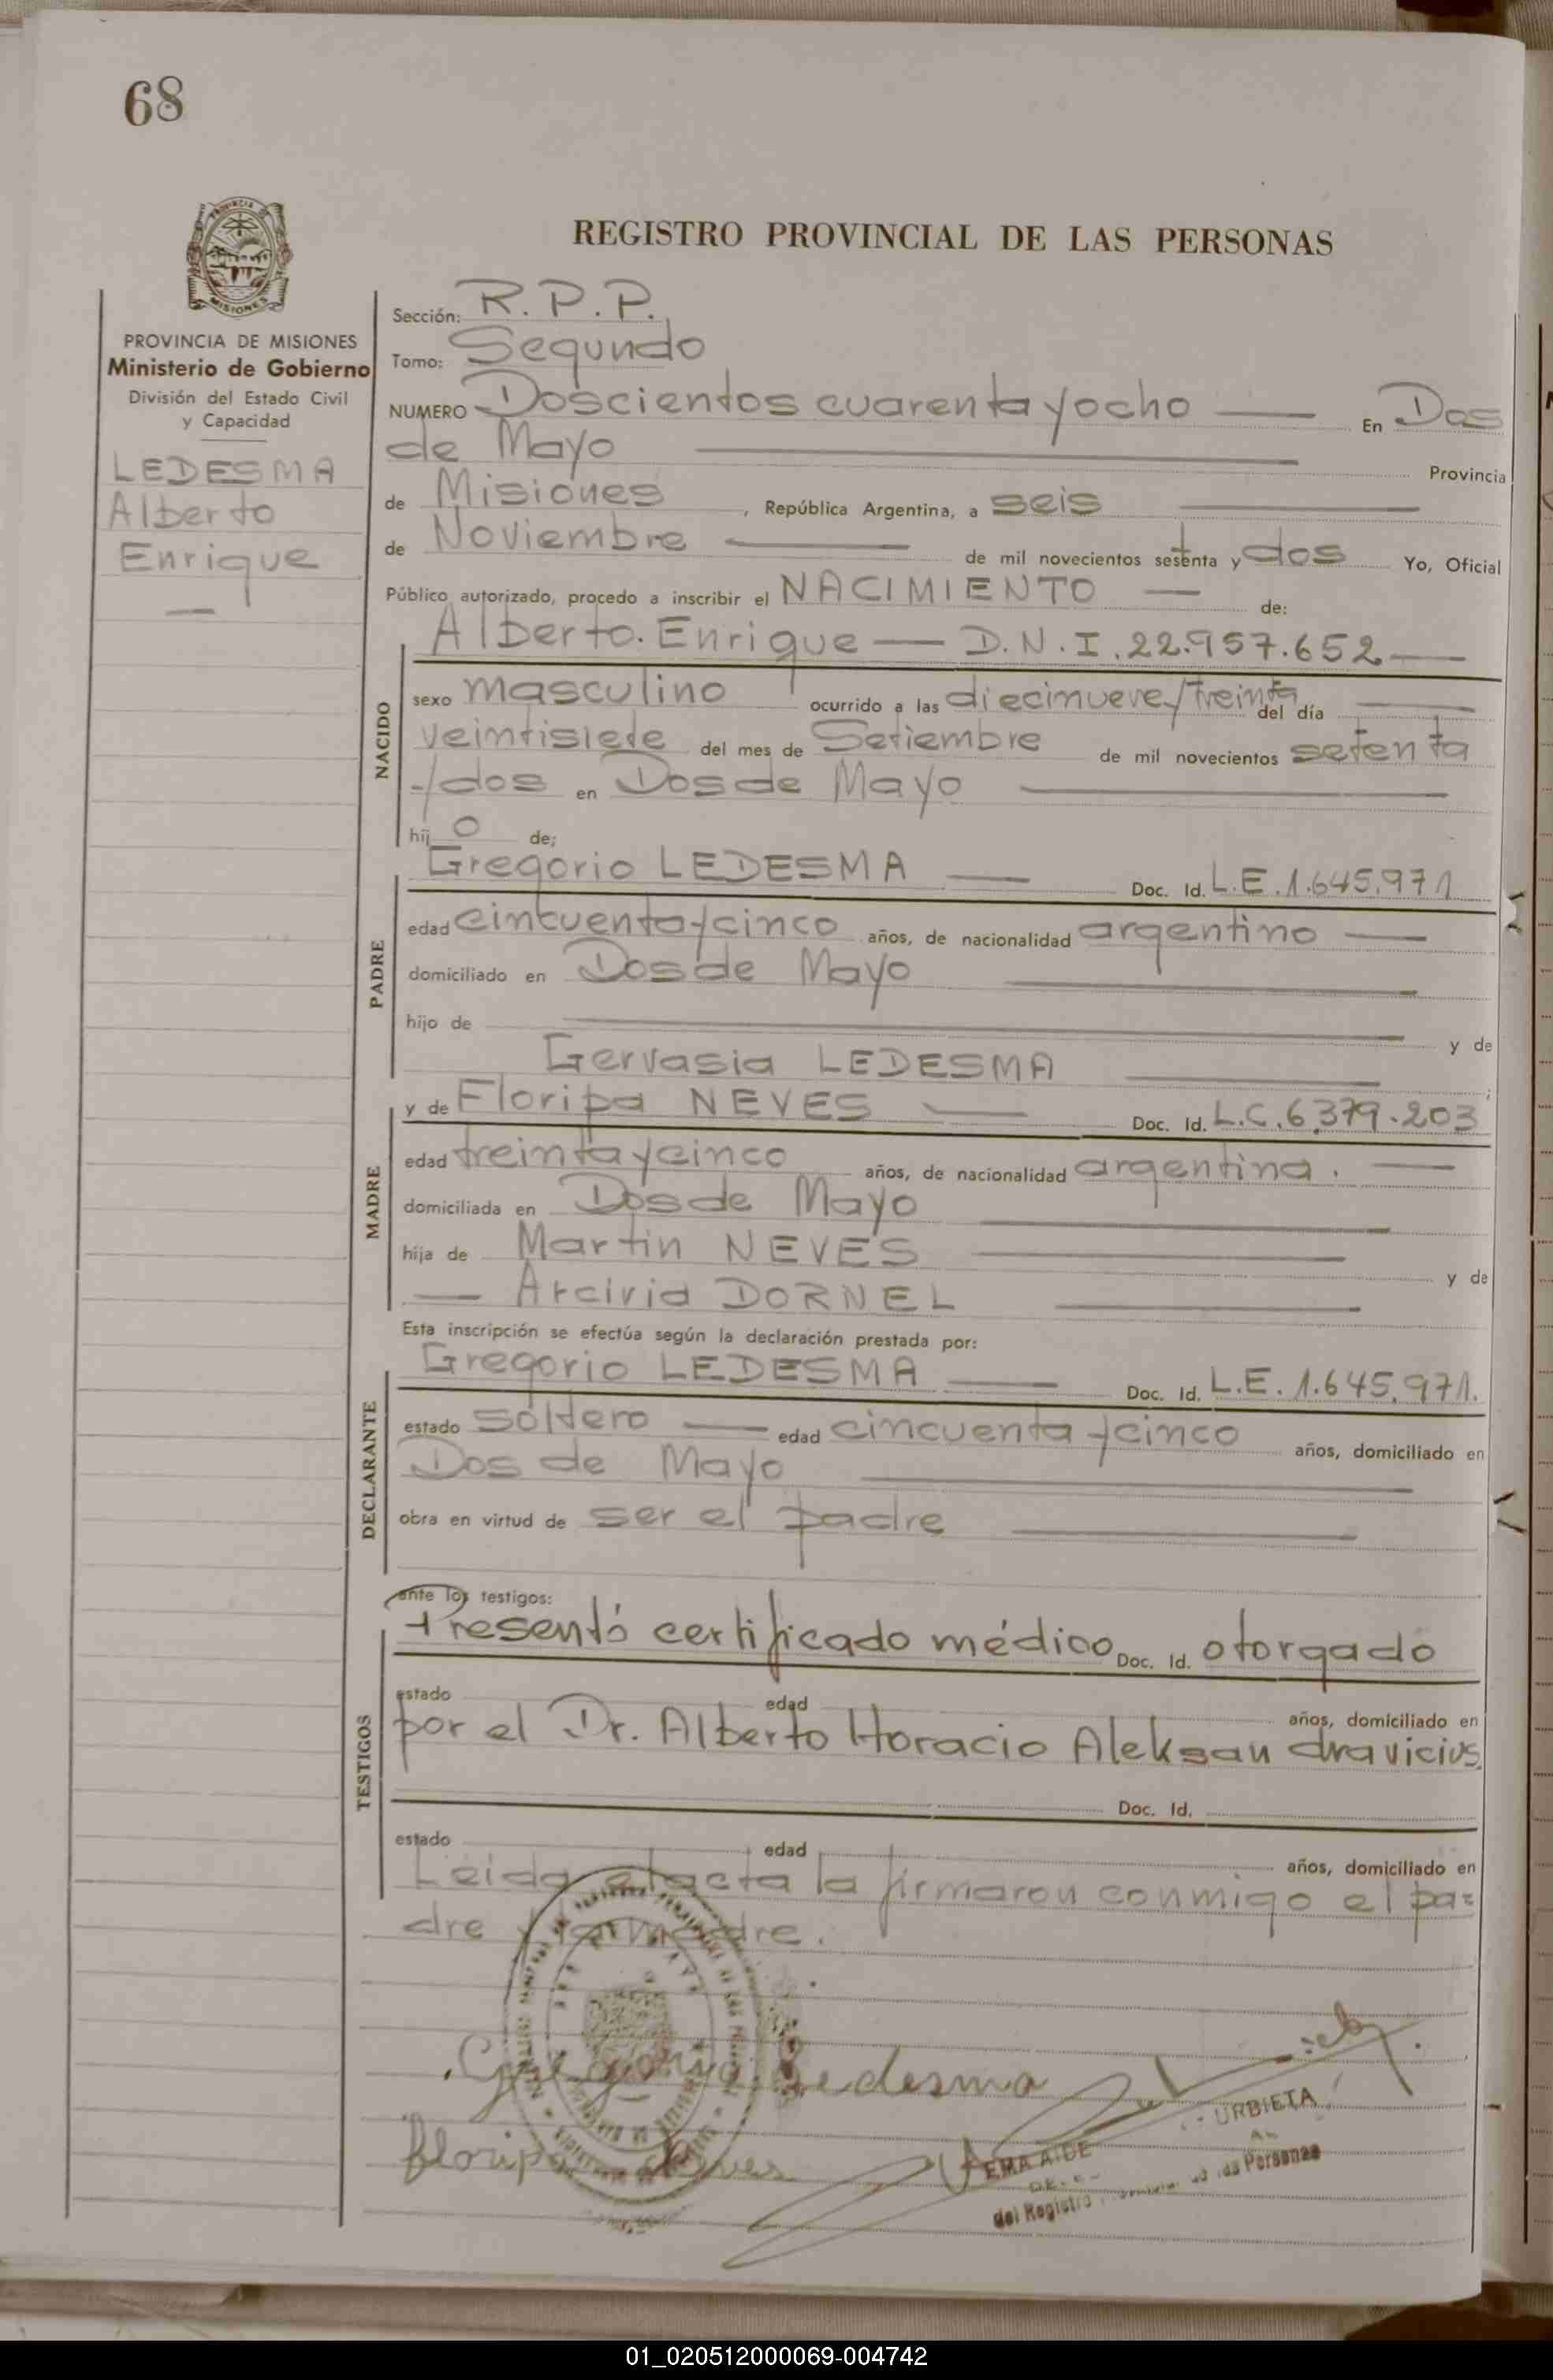 68
REGISTRO PROVINCIAL DE LAS PERSONAS
MISIONES
PROVINCIA DE MISIONES
Ministerio de Gobierno
División del Estado Civil
y Capacidad
LEDESMA
Alberto
Enrique
Sección: R.P.P.
Tomo: Segundo
NUMERO Doscientos cuarenta y ocho — En Dos
de Mayo — Provincia
de Misiones, República Argentina, a seis —
de Noviembre — de mil novecientos setenta y dos Yo, Oficial
Público autorizado, procedo a inscribir el NACIMIENTO — de:
Alberto. Enrique — D.N.I. 22.957.652 —
NACIDO
sexo masculino ocurrido a las diecinueve y treinta del día —
veintisiete del mes de Setiembre de mil novecientos setenta
y dos en Dos de Mayo —
hij o de;
Gregorio LEDESMA — Doc. Id. L.E. 1.645.971
PADRE
edad cincuenta y cinco años, de nacionalidad argentino —
domiciliado en Dos de Mayo —
hijo de — y de
Gervasia LEDESMA — ;
y de Floripa NEVES — Doc. Id. L.C. 6.379.203
MADRE
edad treinta y cinco años, de nacionalidad argentina. —
domiciliada en Dos de Mayo —
hija de Martin NEVES — y de
— DORNEL —
Esta inscripción se efectúa según la declaración prestada por:
Gregorio LEDESMA — Doc. Id. L.E. 1.645.971.
DECLARANTE
estado soltero — edad cincuenta y cinco años, domiciliado en
Dos de Mayo —
obra en virtud de ser el padre —
ante los testigos:
Presentó certificado médico Doc. Id. otorgado
TESTIGOS
estado edad años, domiciliado en
por el Dr. Alberto Horacio Aleksandravicius.
Doc. Id.
estado edad años, domiciliado en
Leida el acta la firmaron conmigo el pa=
dre y la madre.
Gregorio Ledesma
Floripa Neves
URBIETA
del Registro de las Personas
01_020512000069-004742